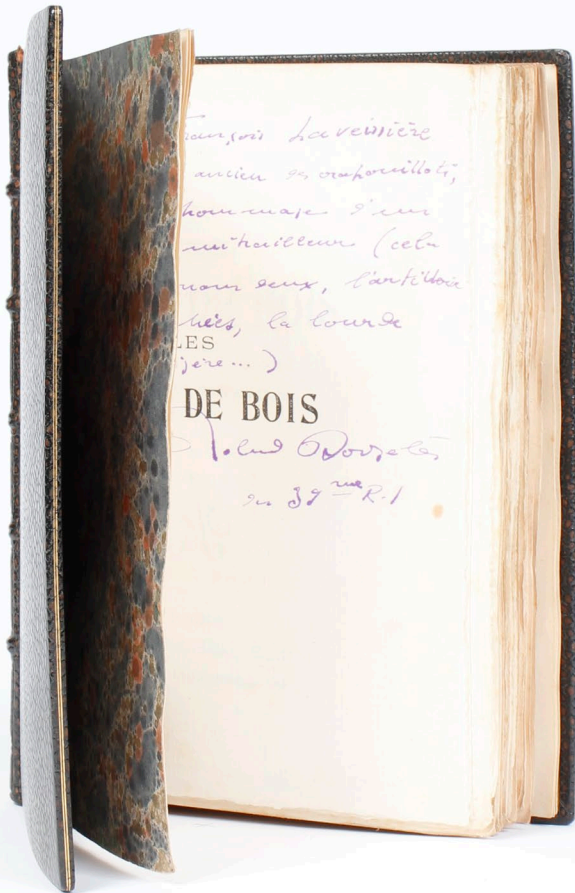 rançois Laveissière
ancien des crapouillots,
hommage d'un
mitrailleur (cela
nous deux, l'artillerie
hées, la lourde
LES
gère...)
DE BOIS
Roland Dorgelès
du 39me R.I